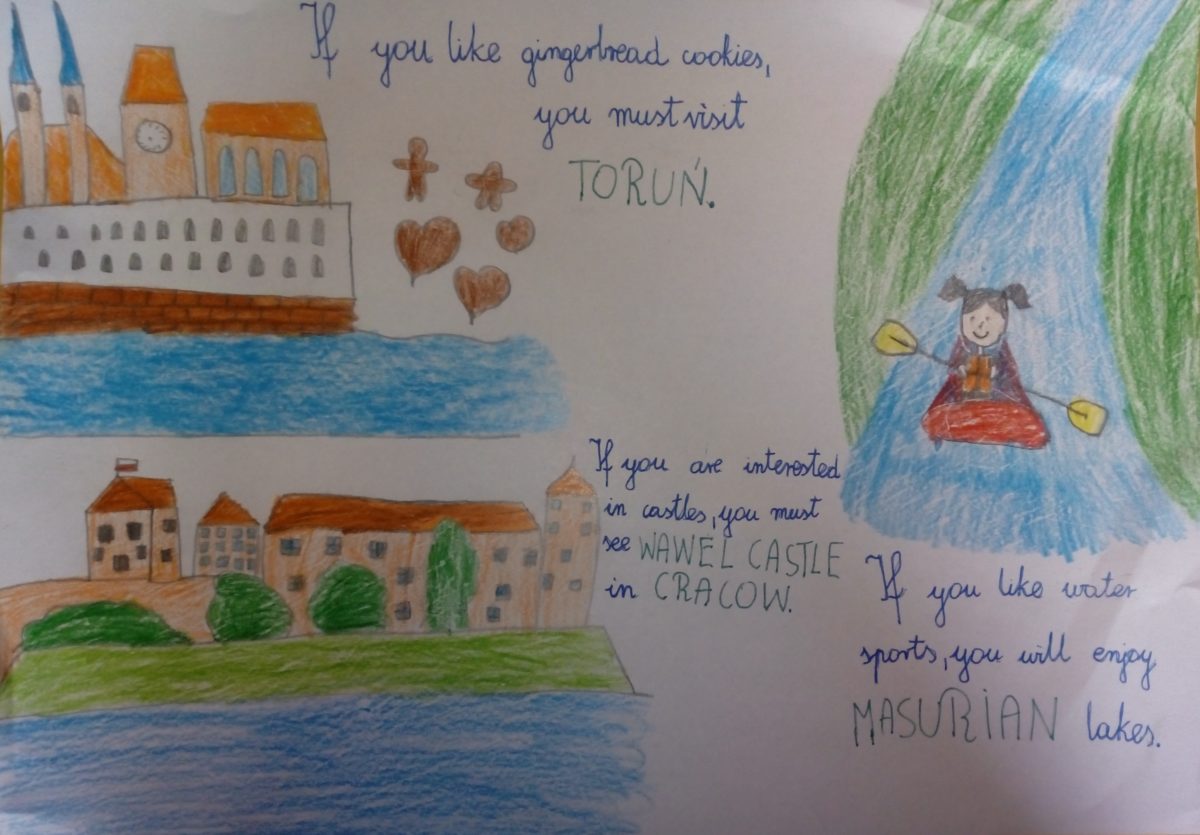 If you like gingerbread cookies,
you must visit
TORUŃ.
If you are interested
in castles, you must
see WAWEL CASTLE
in CRACOW.
If you like water
sports, you will enjoy
MASURIAN lakes.